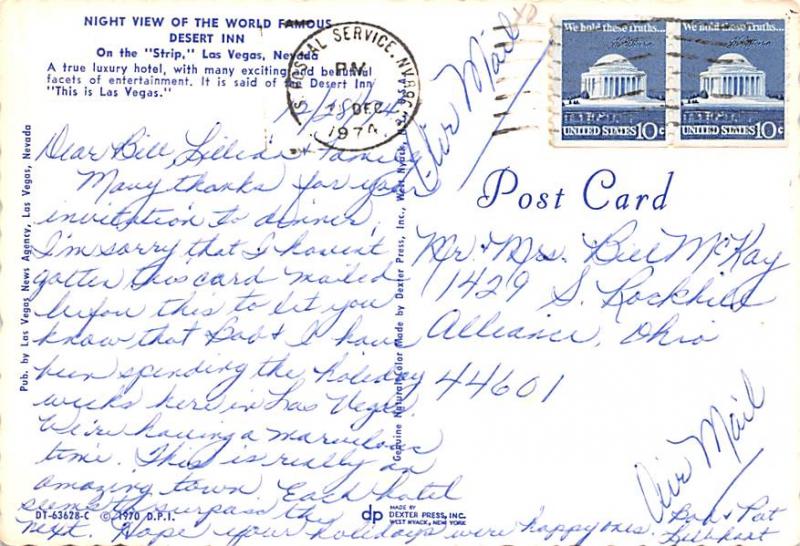 NIGHT VIEW OF THE WORLD FAMOUS
DESERT INN
On the "Strip," Las Vegas, Nevada
A true luxury hotel, with many exciting and beautiful
facets of entertainment. It is said of the Desert Inn
"This is Las Vegas."
U.S. POSTAL SERVICE, NV 891
PM
DEC
1974
We hold these Truths...
UNITED STATES 10c
We hold these Truths...
UNITED STATES 10c
Air Mail
12/28/74
Dear Bill, Lillian & Family
Many thanks for your
invitation to dinner.
I'm sorry that I haven't
gotten this card mailed
before this to let you
know that Bob & I have
been spending the holiday
weeks here in Las Vegas.
We're having a marvelous
time. This is really an
amazing town. Each hotel
seems to surpass the
next. Hope your holidays were happy ones.
Bob & Pat
Post Card
Mr. & Mrs. Bill McKay
1429 S. Rockhill
Alliance, Ohio
44601
Air Mail
Pub. by Las Vegas News Agency, Las Vegas, Nevada
Genuine Natural Color Made by Dexter Press, Inc., West Nyack, N.Y., U.S.A.
DT-63628-C © 1970 D.P.I.
dp MADE BY
DEXTER PRESS, INC.
WEST NYACK, NEW YORK